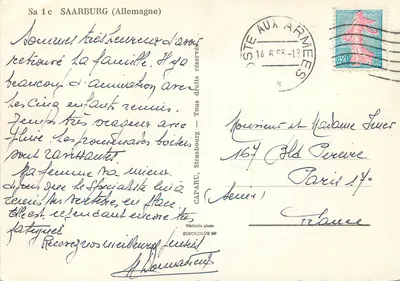 Sa 1 c SAARBURG (Allemagne)
Sommes très heureux d'avoir
retrouvé la famille. Il y a
beaucoup d'animation avec
les cinq enfants réunis.
Temps très orageux avec
pluie les promenades boisées
sont ravissantes.
Ma femme va mieux
depuis que le spécialiste lui a
remis les vertèbres en place.
Elle est cependant encore très
fatiguée
Recevez nos meilleures
CAPARU, Strasbourg — Tous droits réservés.
Véritable photo
EUROCOLOR MF
POSTE AUX ARMEES
14.6
0,20
Monsieur et Madame
167 Bld Pereire
Paris 17e
(Seine)
France